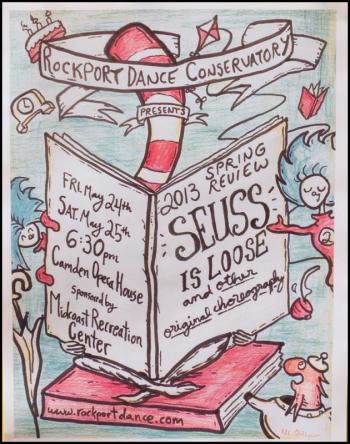 ROCKPORT DANCE CONSERVATORY
PRESENTS
FRI. MAY 24th
SAT. MAY 25th
6:30pm
Camden Opera House
sponsored by
Midcoast Recreation
Center
2013 SPRING
REVIEW
SEUSS
IS LOOSE
and other
original choreography
www.rockportdance.com